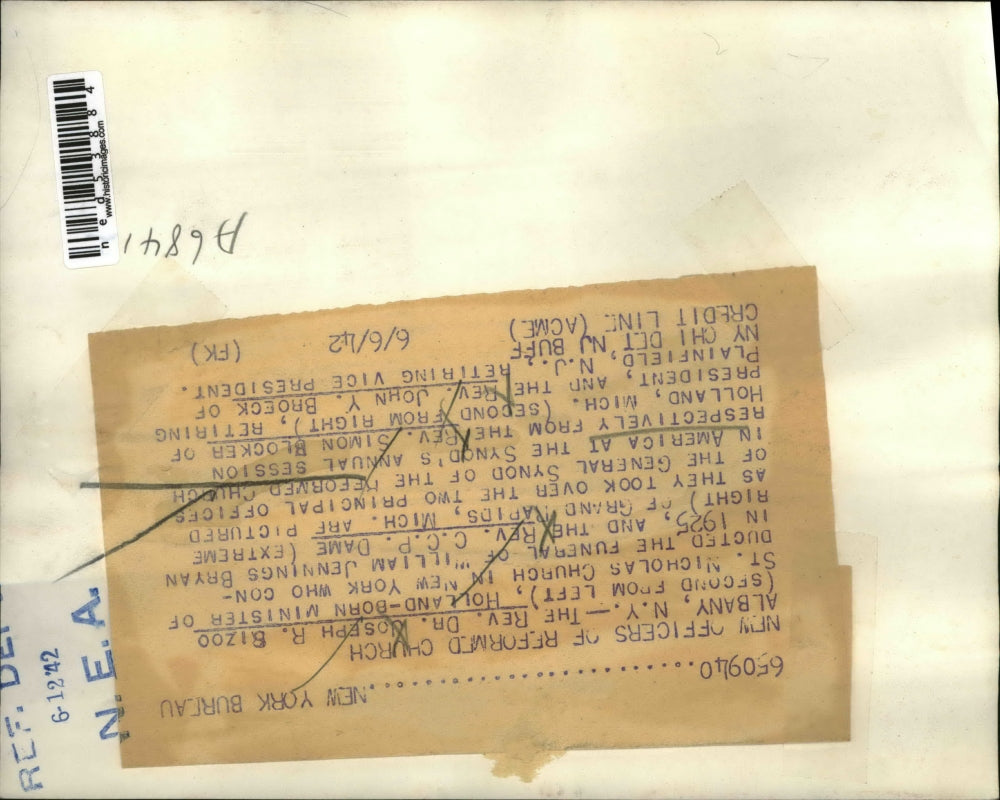 650940.......................NEW YORK BUREAU
NEW OFFICERS OF REFORMED CHURCH
ALBANY, N.Y.—THE REV. DR. JOSEPH R. SIZOO
(SECOND FROM LEFT), HOLLAND-BORN MINISTER OF
ST. NICHOLAS CHURCH IN NEW YORK WHO CON-
DUCTED THE FUNERAL OF WILLIAM JENNINGS BRYAN
IN 1925, AND THE REV. C.C.P. DAME (EXTREME
RIGHT) OF GRAND RAPIDS, MICH. ARE PICTURED
AS THEY TOOK OVER THE TWO PRINCIPAL OFFICES
OF THE GENERAL SYNOD OF THE REFORMED CHURCH
IN AMERICA AT THE SYNOD'S ANNUAL SESSION
RESPECTIVELY FROM THE REV. SIMON BLOCKER OF
HOLLAND, MICH. (SECOND FROM RIGHT), RETIRING
PRESIDENT, AND THE REV. JOHN Y. BROECK OF
PLAINFIELD, N.J., RETIRING VICE PRESIDENT.
NY CHI DET NJ BUFF
CREDIT LINE (ACME) 6/6/42 (FK)
A6841
ned53884
www.historicimages.com
REF. 
6-12-42
N. E. A.